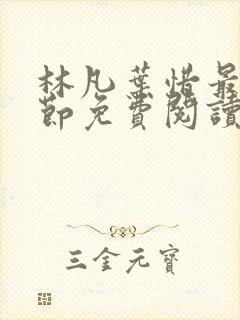 林凡葉惜最
節免費閱讀
三金元寶